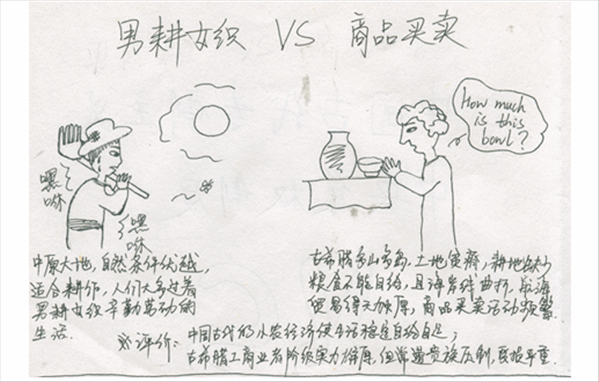 男耕女织 VS 商品买卖
How much
is this
bowl?
嘿
咻
嘿
咻
中原大地,自然条件优越,
适合耕作,人们大多过着
男耕女织辛勤劳动的
生活.
古希腊多山多岛,土地贫瘠,耕地缺少
粮食不能自给,且海岸线曲折,航海
贸易得天独厚,商品买卖活动频繁
评价:中国古代的小农经济使生活稳定自给自足;
古希腊工商业者阶级实力雄厚,但常遭贵族压制,严重.